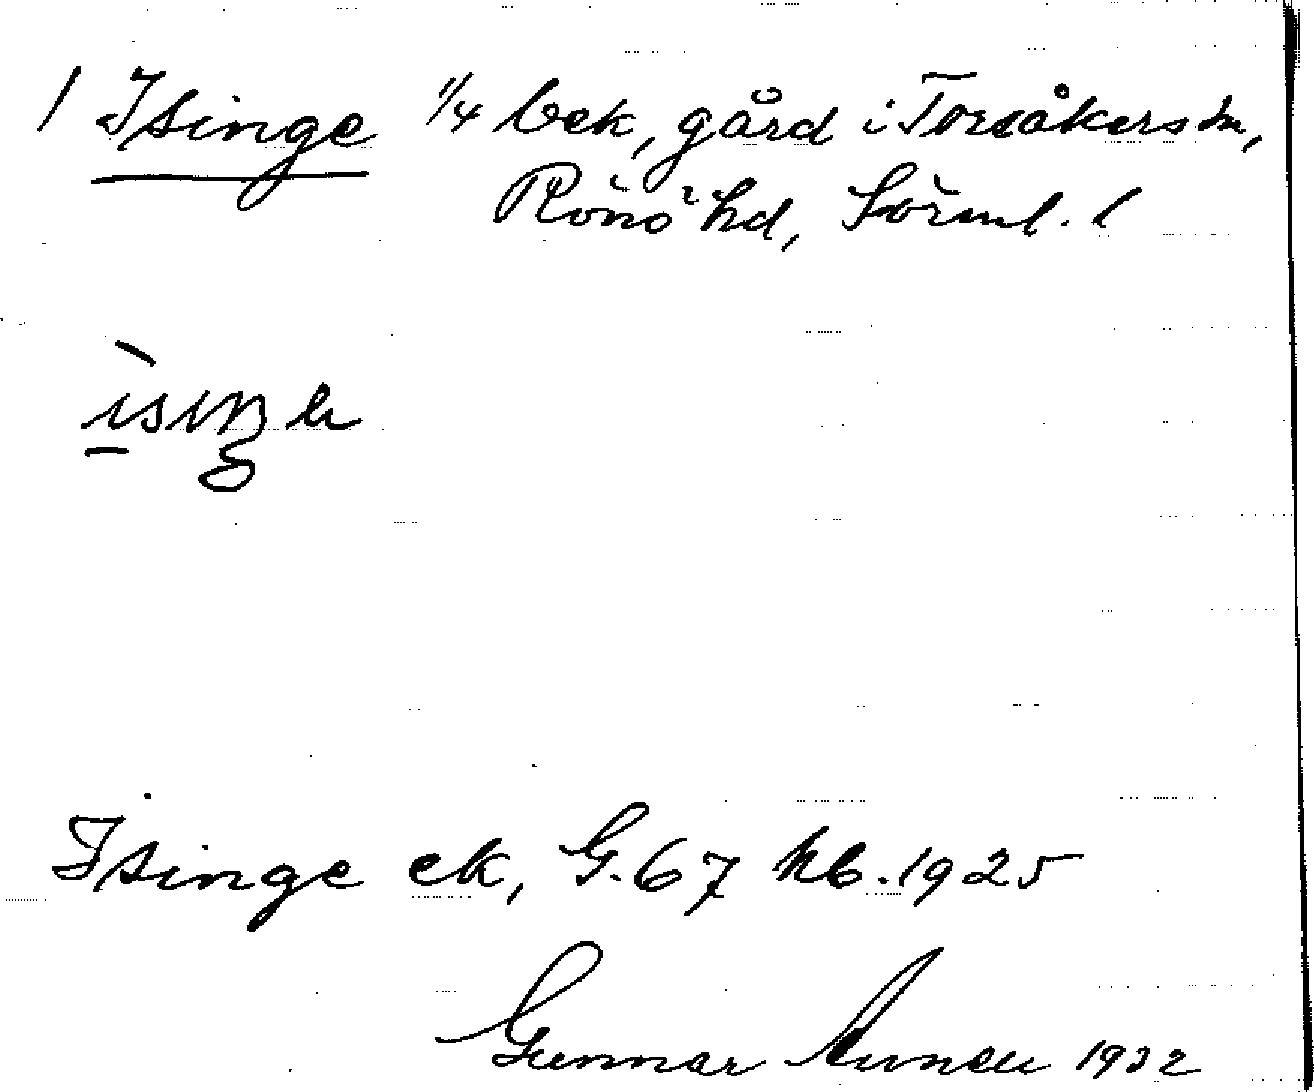 1 Isinge 1/4 bek, gård i Torsåkers sn,
Rönö hd, Sörml. l
Isinge ek, G. 67 kb. 1925
Gunnar 1932